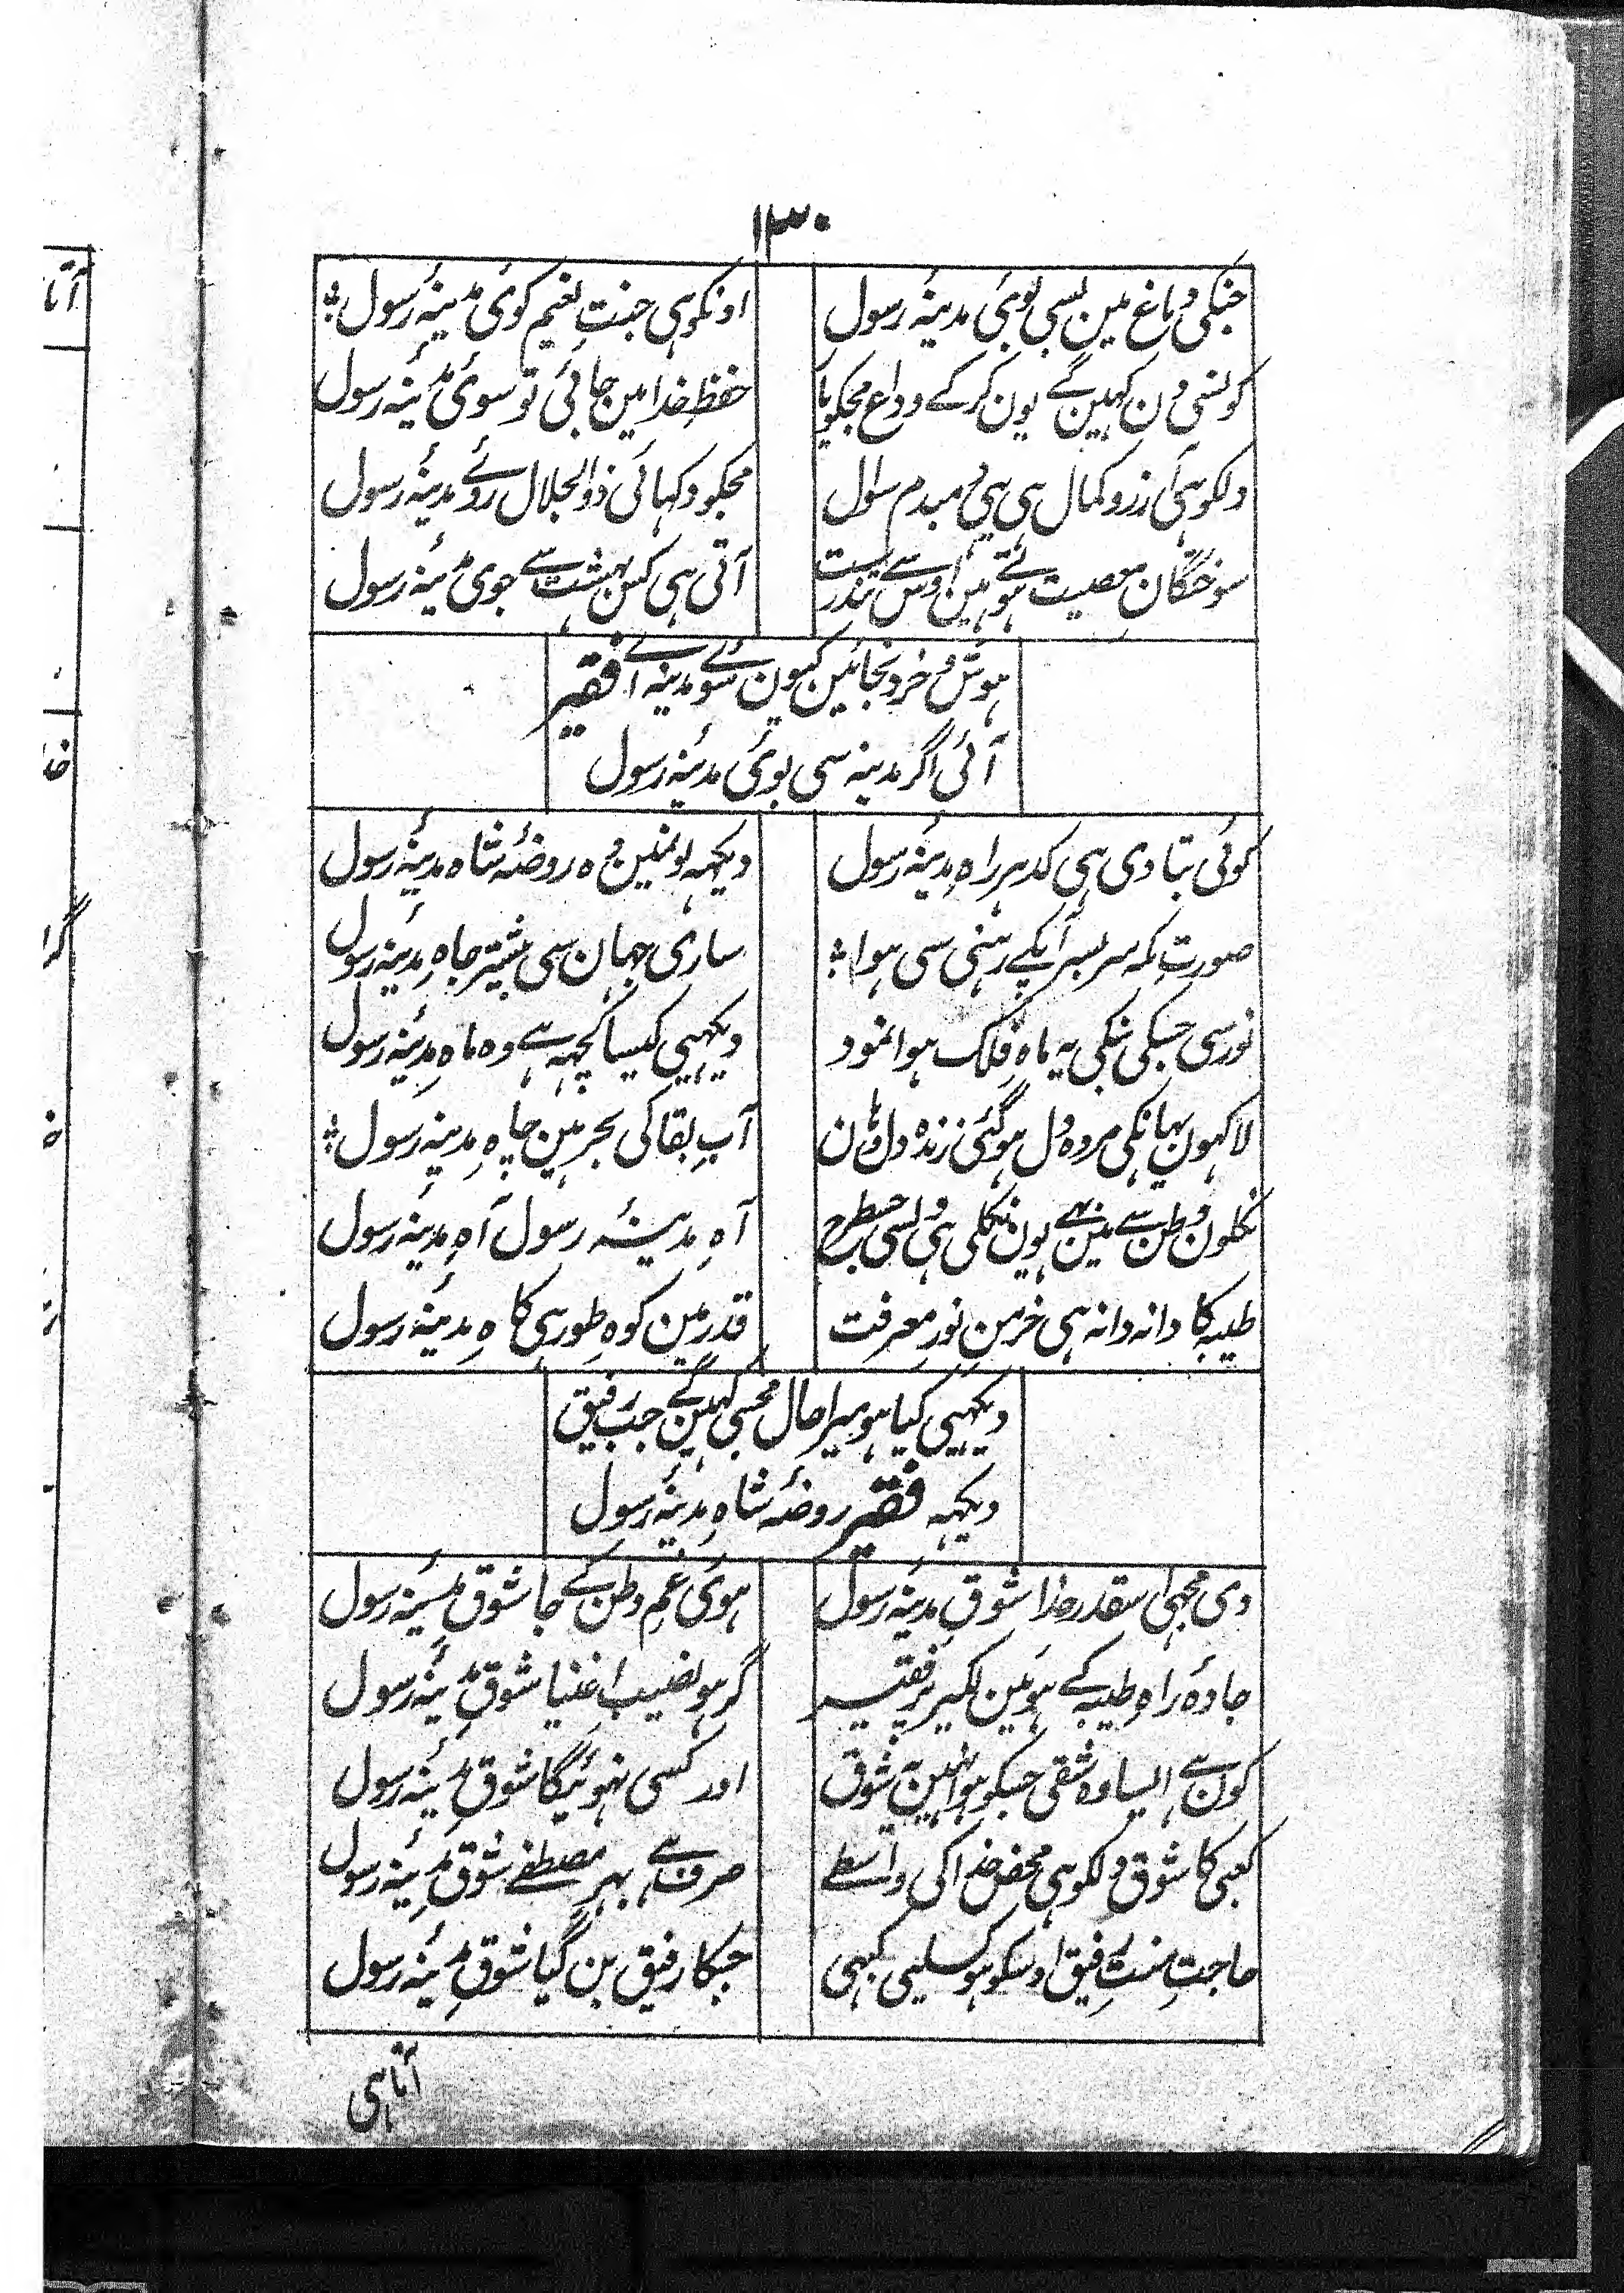 ۱۳۰
جنکی دماغ مین بسی بوئی مدینۂ رسول
اونکو ہی جنتِ نعیم کوئی مدینۂ رسول
کونسی دن کہین گے یون کرکے وداع مجکو یا
حفظِ خدا مین جائی تو سوئی مدینۂ رسول
دلکو ہی آرزو کمال ہی یہی دمبدم سوال
مجکو دکہائی ذوالجلال روئے مدینۂ رسول
سوختگانِ معصیت ہوتے ہین اوس سے تندرست
آتی ہی کس بہشت سے جوی مدینۂ رسول
ہوش و خرد نجائین کیون سوئے مدینہ اے فقیر
آئی اگر مدینہ سی بوئی مدینۂ رسول
کوئی بتا دی ہی کدہر راہِ مدینۂ رسول
دیکہہ لون مین وہ روضۂ شاہ مدینۂ رسول
صورتِ مکہ سر بسر آپکے رہنی سی ہوا
ساری جہان سی بیشتر جاہِ مدینۂ رسول
نور سی جسکی نیکی یہ ماہِ فلک ہوا نمود
دیکہیی کیسا کچہہ ہے وہ ماہِ مدینۂ رسول
لاکہون یہانکی مردہ دل ہو گئی زندہ دل وہان
آبِ بقا کی بحر مین چاہِ مدینۂ رسول
نکلون وطن سے مین بہی یون نکلی ہی دلسی جسطرح
آہِ مدینۂ رسول آہِ مدینۂ رسول
طیبہ کا دانہ دانہ ہی خرمنِ نورِ معرفت
قدر مین کوہِ طور ہی کاہِ مدینۂ رسول
دیکہیی کیا ہو میرا حال مجسی کہین گے جب رفیق
دیکہہ فقیر روضۂ شاہِ مدینۂ رسول
دی مجہی اسقدر خدا شوقِ مدینۂ رسول
ہوئی غمِ وطن کے جا شوقِ مدینۂ رسول
جادۂ راہ طیبہ کے ہو مین لکیر پر فقیر
گر ہو نصیبِ اغنیا شوقِ مدینۂ رسول
کون ہے ایسا وہ شقی جسکو ہوا نہین یہ شوق
اور کسی نہوئیگا شوقِ مدینۂ رسول
کعبی کا شوق دلکو ہی محض خدا کی واسطے
صرف ہے بہرِ مصطفے شوقِ مدینۂ رسول
حاجتِ منتِ رفیق اوسکو ہو کسلیی کبہی
جسکا رفیق بن گیا شوقِ مدینۂ رسول
آتا ہی